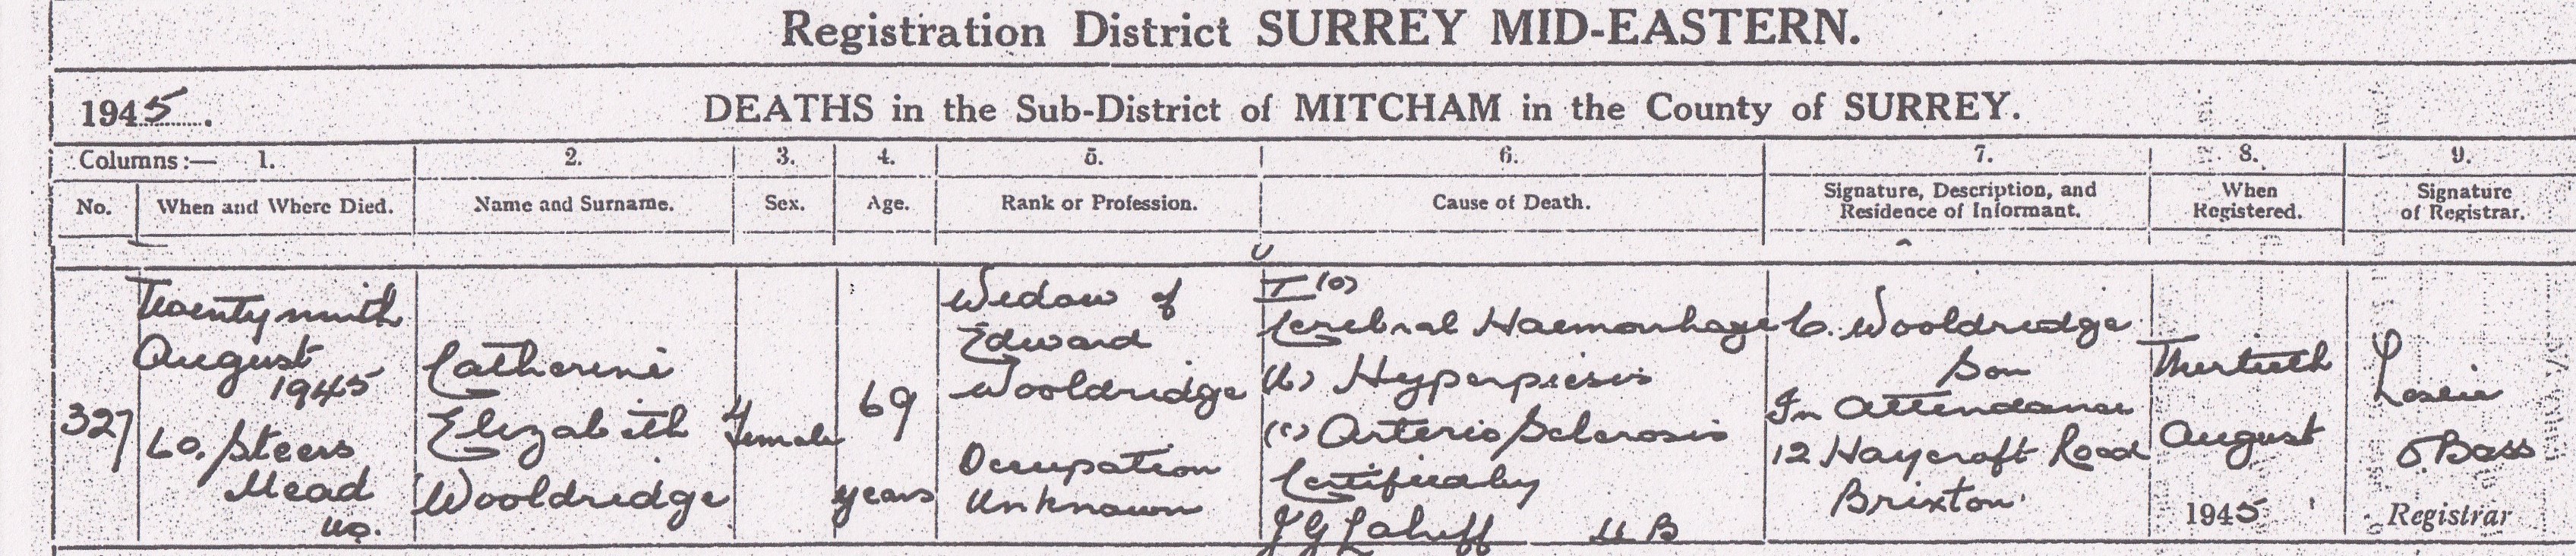 Registration District SURREY MID-EASTERN.
1945. DEATHS in the Sub-District of MITCHAM in the County of SURREY.
Columns:— 1. 2. 3. 4. 5. 6. 7. 8. 9.
No. When and Where Died. Name and Surname. Sex. Age. Rank or Profession. Cause of Death. Signature, Description, and Residence of Informant. When Registered. Signature of Registrar.
327
Twenty ninth
August
1945
60. Steers
Mead
Catherine
Elizabeth
Wooldridge
Female
69
years
Widow of
Edward
Wooldridge
Occupation
Unknown
I (a)
Cerebral Haemorrhage
(b) Hyperpiesis
(c) Arterio Sclerosis
Certified by
J G Lahiff M B
C. Wooldridge
Son
In attendance
12 Haycroft Road
Brixton
Thirtieth
August
1945
Leslie
Bass
Registrar